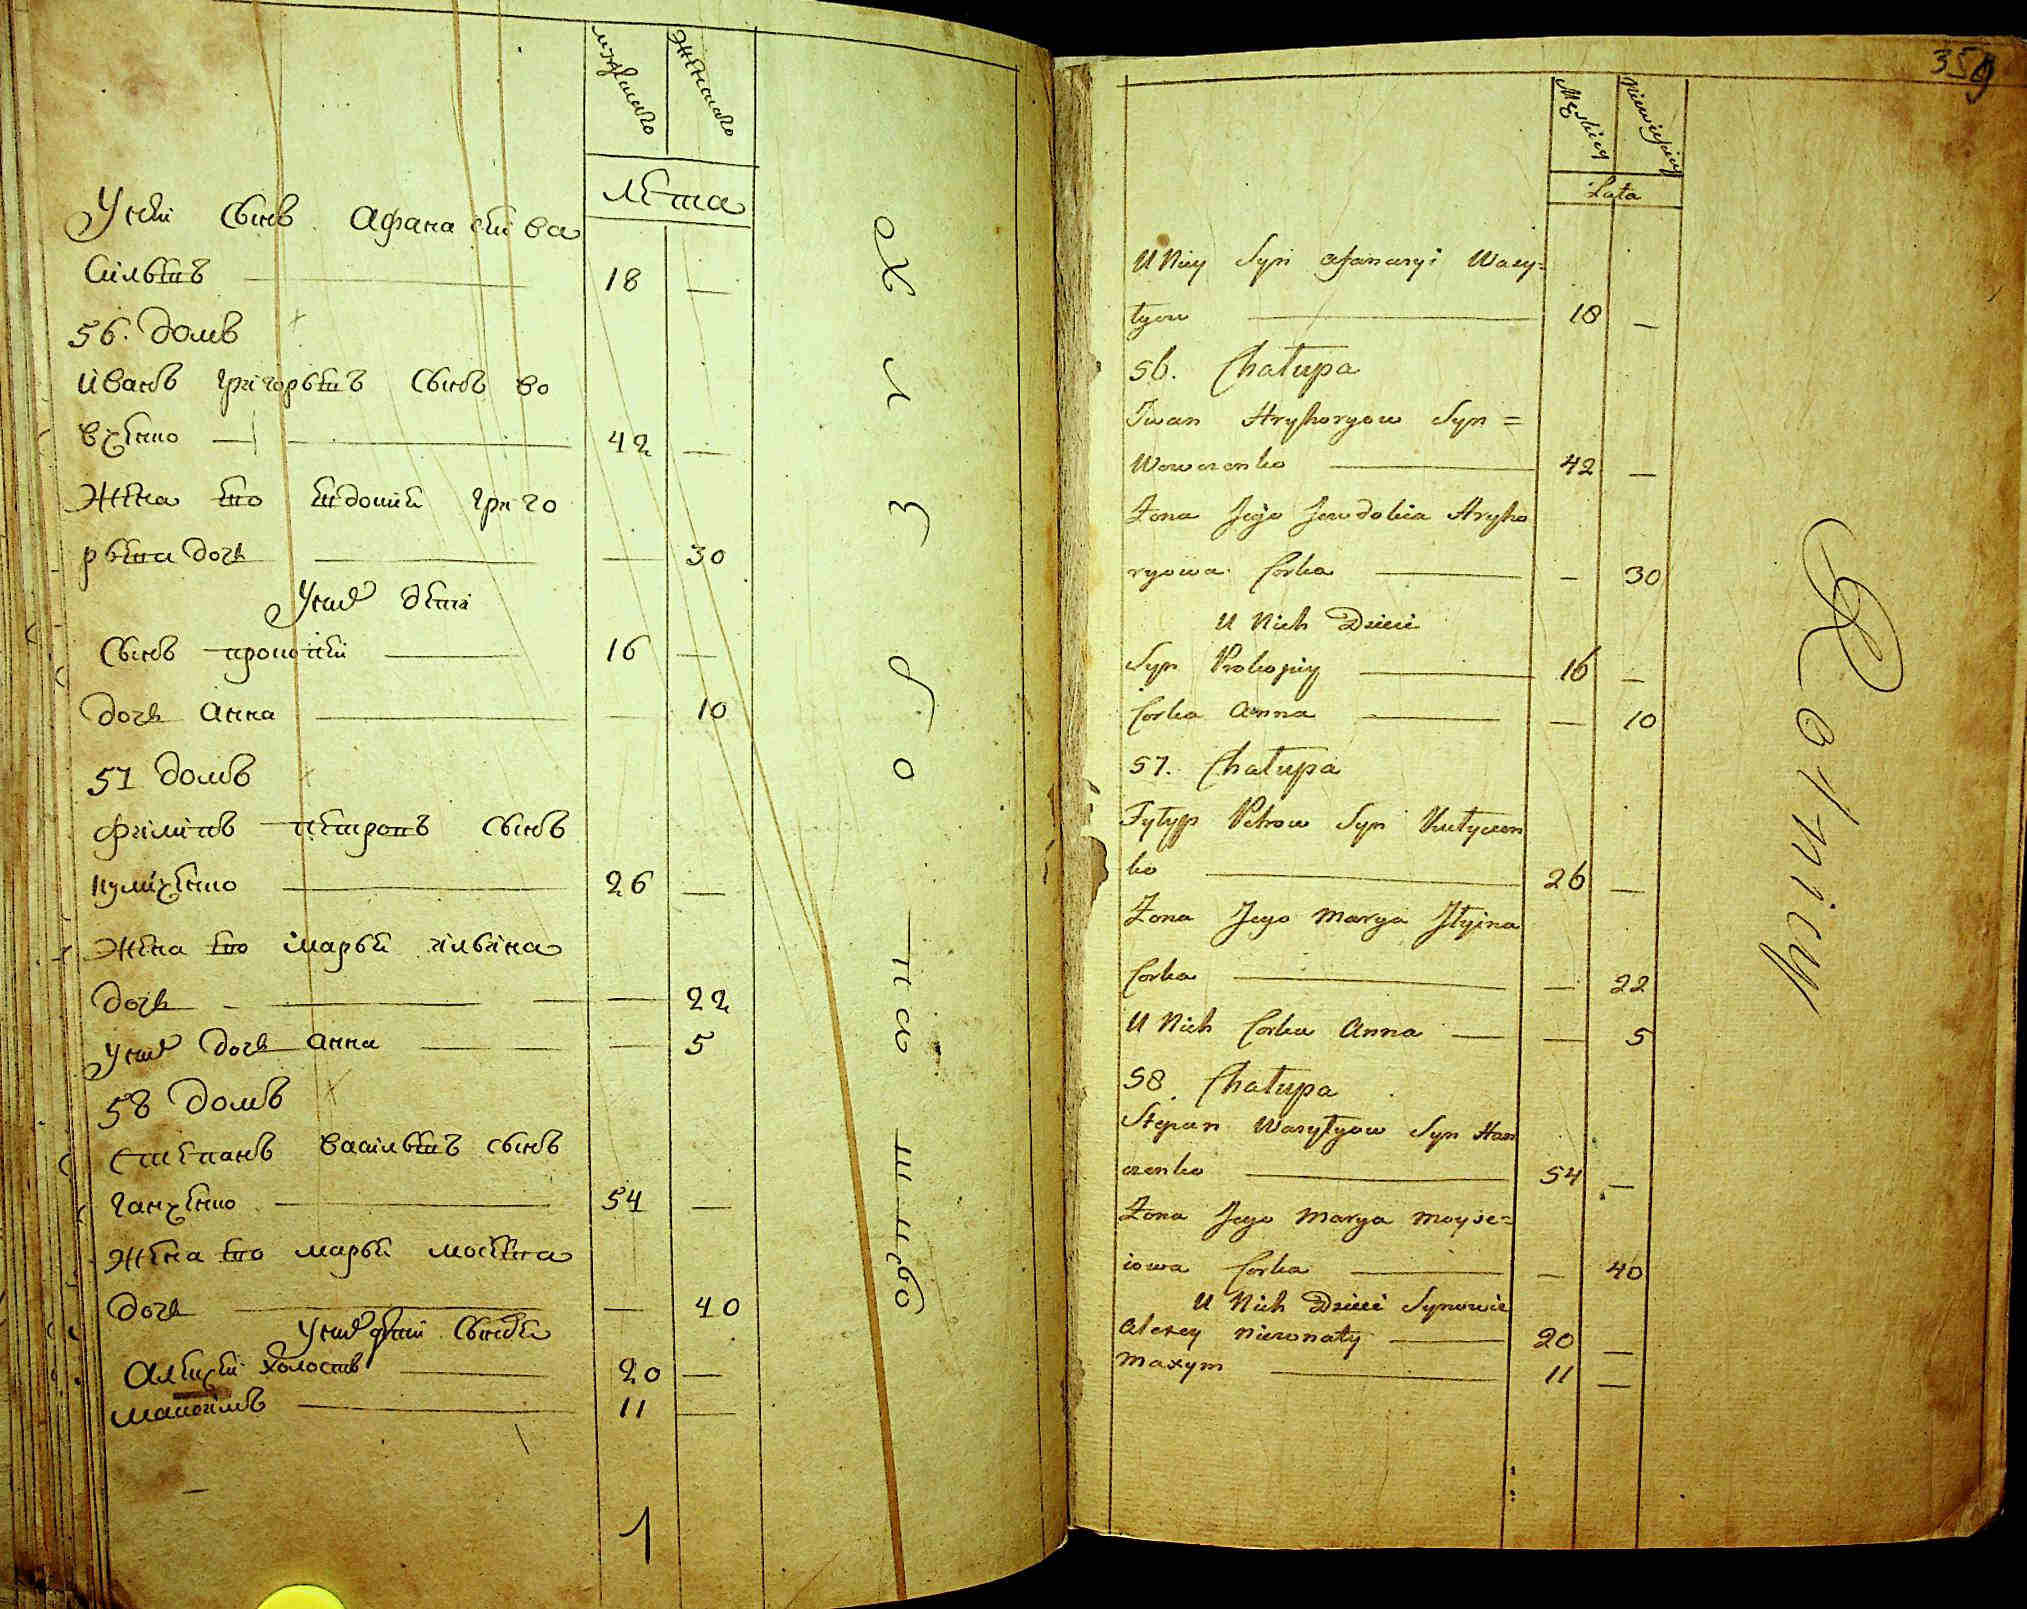 мужеска
женска
Лета
У неи Сынъ Афанасеи Ва
сильевъ 18 —
56. домъ
Иванъ григорьевъ Сынъ Во
вченко 42 —
Жена его Евдокия григо
рьева дочь — 30
У них дети
Сынъ прокопеи 16 —
дочь Анна — 10
57 домъ
филипъ петровъ Сынъ
куличенко 26 —
Жена его марья ильина
дочь — 22
У них дочь Анна — 5
58 домъ
Степанъ васильевъ сынъ
ганченко 54 —
Жена его марья
дочь — 40
У них дети Сыновья
Алексеи холостъ 20 —
максимъ 11 —
1
хлеборо
пашецъ
359
Męskiey
Niewieskiey
Lata
U Niey Syn Afanasyi Wasy=
lyow 18 —
56. Chałupa
Iwan Hryhoryow Syn =
Wowczenko 42 —
Żona Jego Jewdokia Hryho
ryowa Corka — 30
U Nich Dzieci
Syn Prokopiy 16 —
Corka Anna — 10
57. Chałupa
Fyłyp Petrow Syn Kułyczen
ko 26 —
Żona Jego Marya Jłyina
Corka — 22
U Nich Corka Anna — 5
58. Chałupa
Stepan Wasyłyow Syn Han
czenko 54 —
Żona Jego Marya Moyse=
iowa Corka — 40
U Nich Dzieci Synowie
Alexey nieżonaty 20 —
Maxym 11 —
Rolnicy